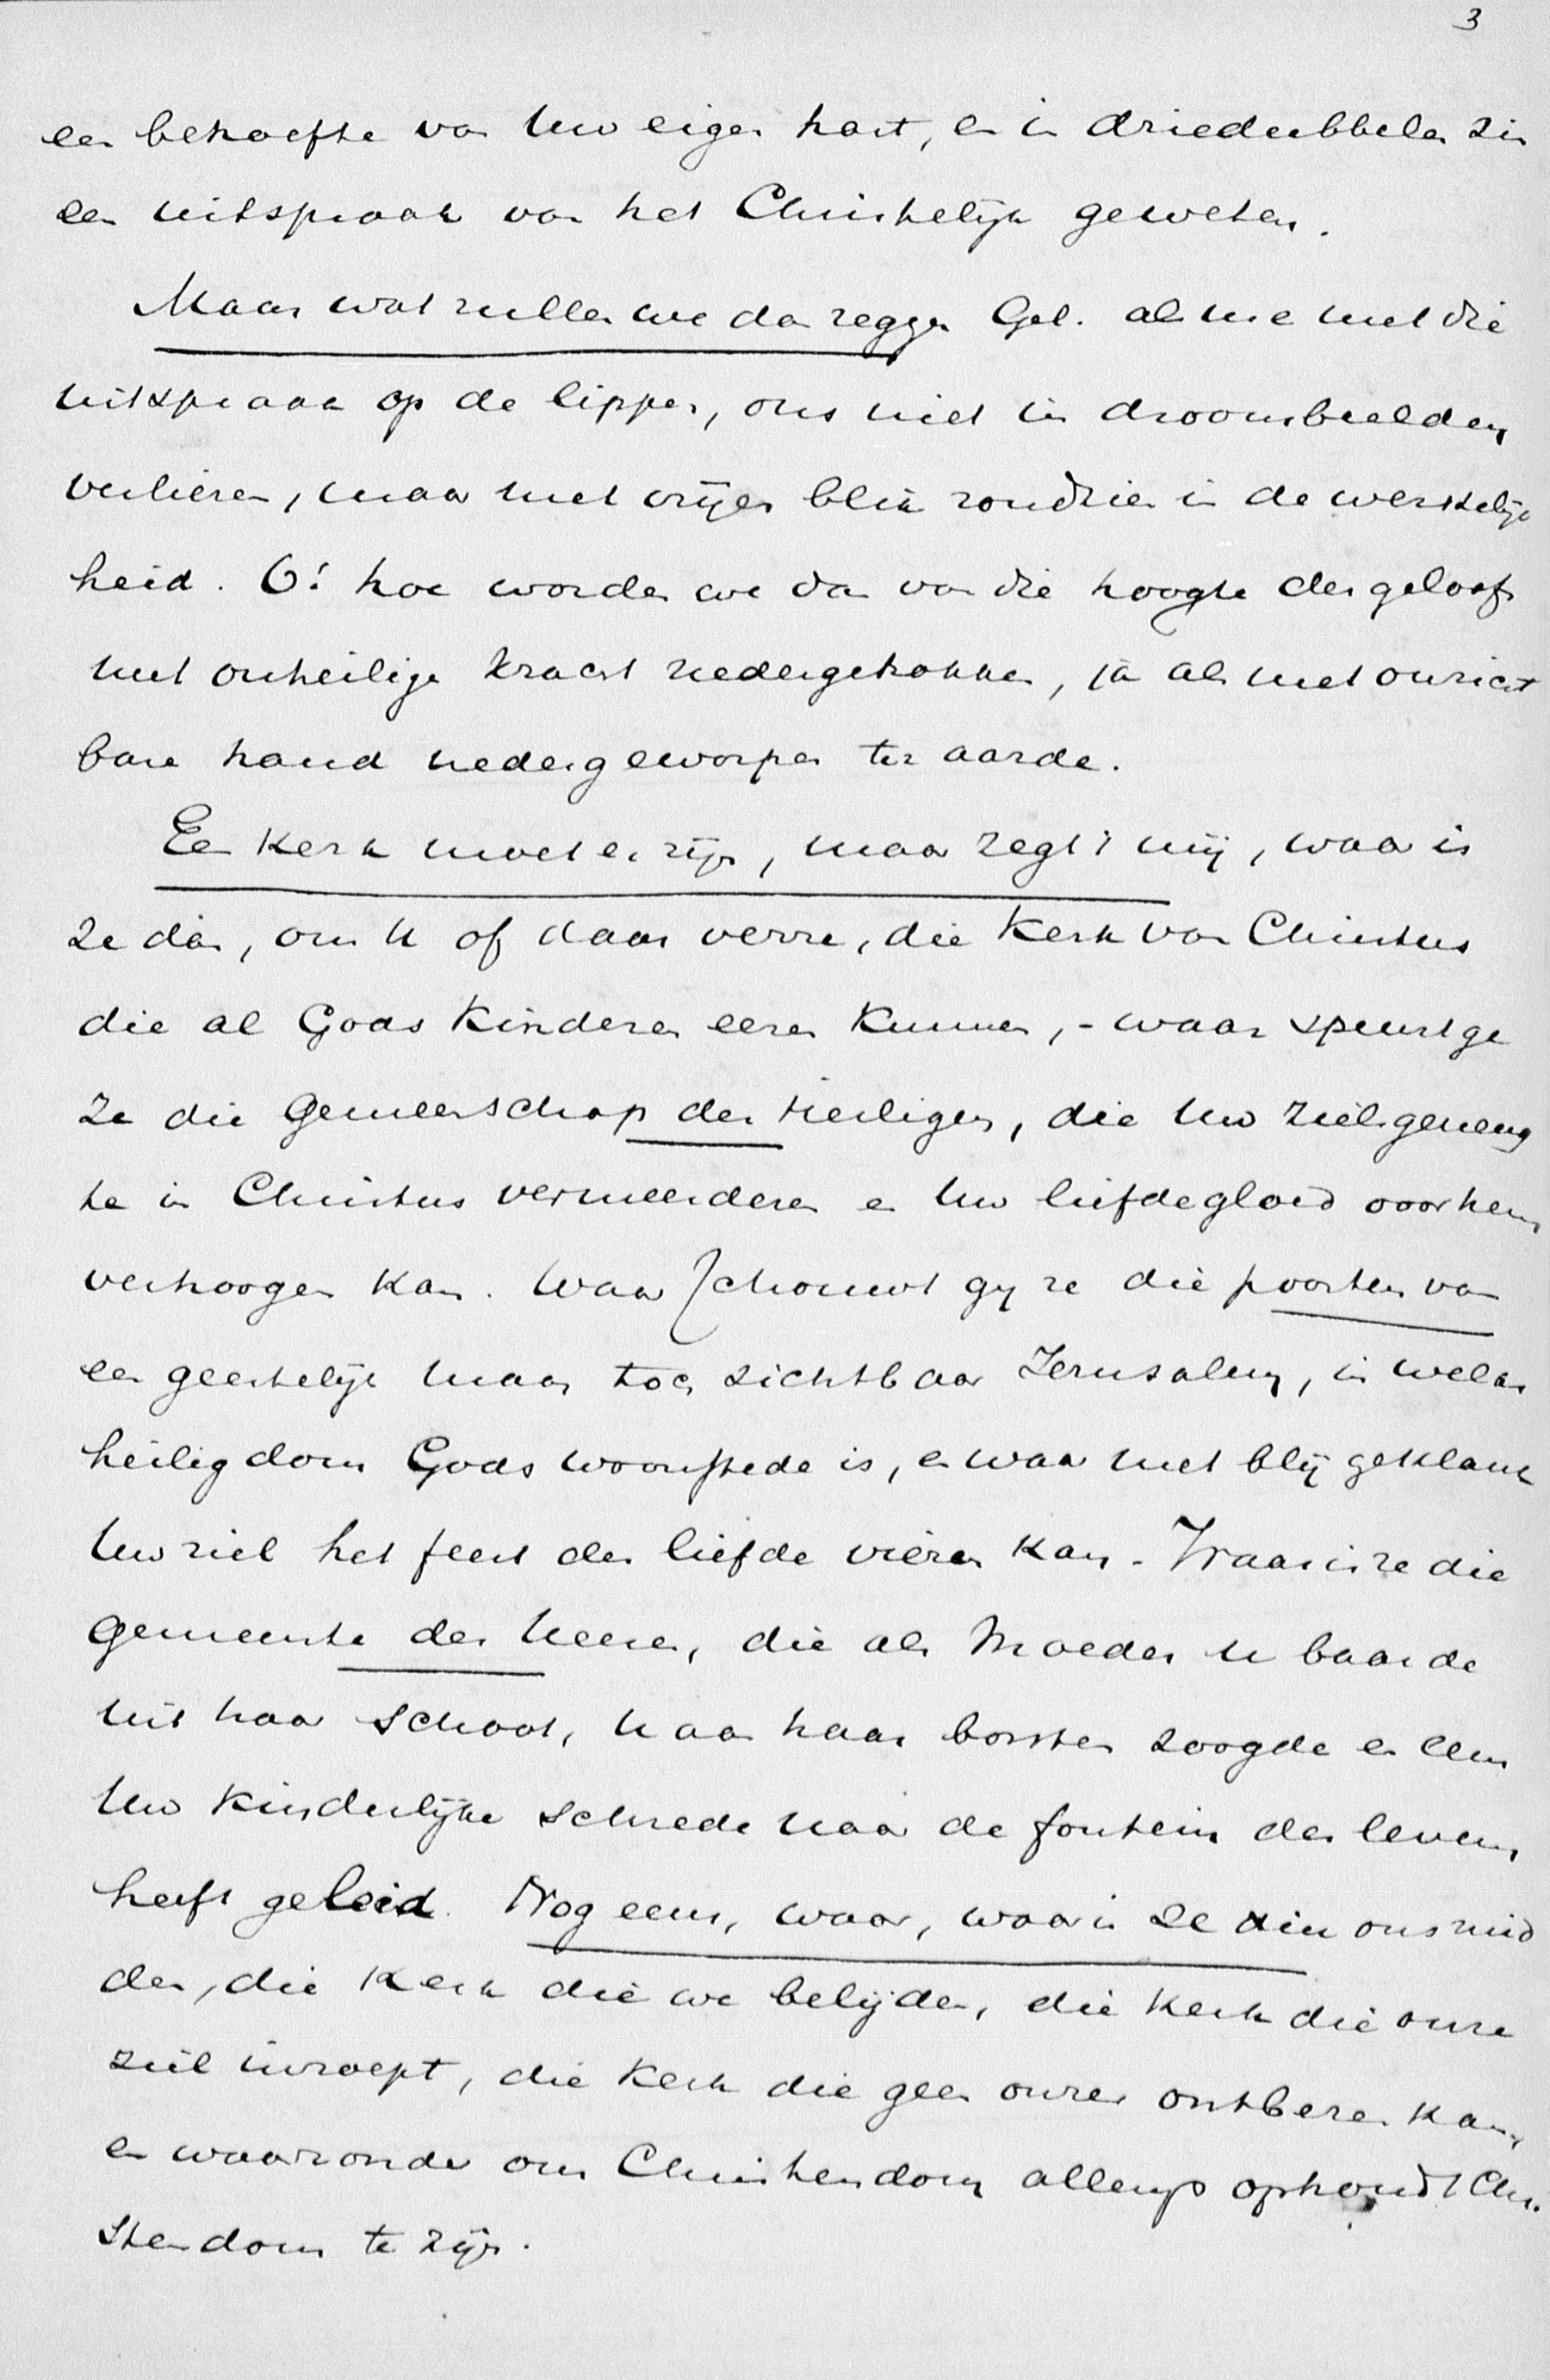 3
een behoefte van Uw eigen hart, en in driedubbelen zin
een uitspraak van het Christelijk geweten.
Maar wat zullen we dan zeggen Gel. als we met die
uitspraak op de lippen, ons niet in droombeelden
verliezen, maar met vrijen blik rondzien in de werkelijk
heid. O! hoe worden we dan van die hoogte des geloofs
met onheilige kracht nedergetrokken, ja als met onzicht
bare hand nedergeworpen ter aarde.
Een Kerk moet er zijn, maar zegt 't mij, waar is
ze dan, om U of daar verre, die Kerk van Christus
die al Gods Kinderen eeren kunnen, - waar speurt ge
ze die Gemeenschap der Heiligen, die Uw zielsgeneug
te in Christus vermeerderen en Uw liefdegloed voor hem
verhoogen kan. Waar schouwt gij ze die poorten van
een geestelijk maar toch zichtbaar Jerusalem, in welks
heiligdom Gods woonstede is, en waar met blij geklank
Uw ziel het feest der liefde vieren kan. - Waar is ze die
gemeente des Heeren, die als Moeder U baarde
uit haar schoot, U aan haar borsten zoogde en eens
Uw kinderlijke schrede naar de fontein des levens
heeft geleid. Nog eens, waar, waar is ze in ons mid
den, die Kerk die we belijden, die Kerk die onze
ziel inroept, die Kerk die geen onzer ontberen kan,
en waarzonder ons Christendom allengs ophoudt Chri-
stendom te zijn.